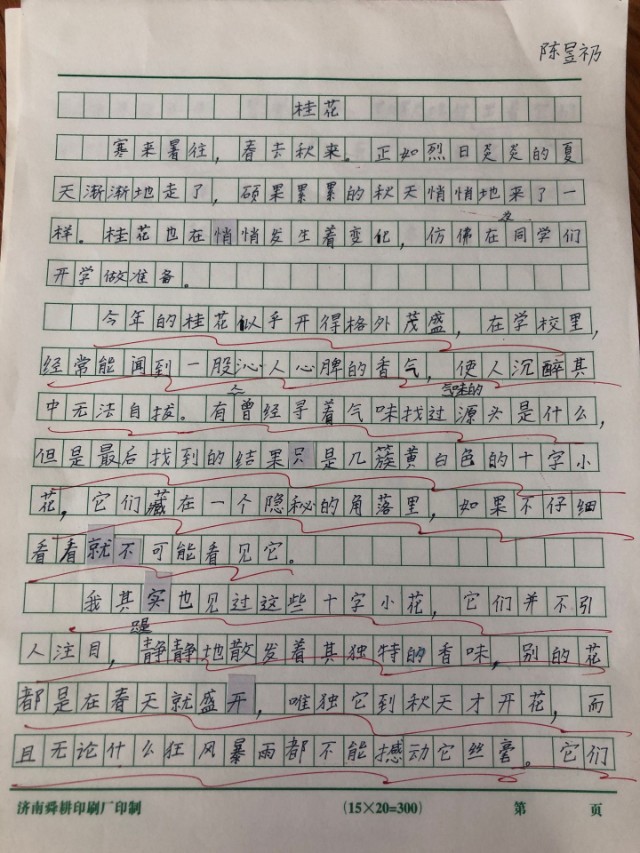 陈昱礽
桂花
寒来暑往，春去秋来。正如烈日炎炎的夏
天渐渐地走了，硕果累累的秋天悄悄地来了一
样。桂花也在悄悄发生着变化，仿佛在为同学们
开学做准备。
今年的桂花似乎开得格外茂盛，在学校里，
经常能闻到一股沁人心脾的香气，使人沉醉其
中无法自拔。有人曾经寻着气味找过气味的源头是什么，
但是最后找到的结果只是几簇黄白色的十字小
花，它们藏在一个隐秘的角落里，如果不仔细
看看就不可能看见它。
我其实也见过这些十字小花，它们并不引
人注目，只是静静地散发着其独特的香味，别的花
都是在春天就盛开，唯独它到秋天才开花，而
且无论什么狂风暴雨都不能撼动它丝毫。它们
济南舜耕印刷厂印制 (15×20=300) 第 页